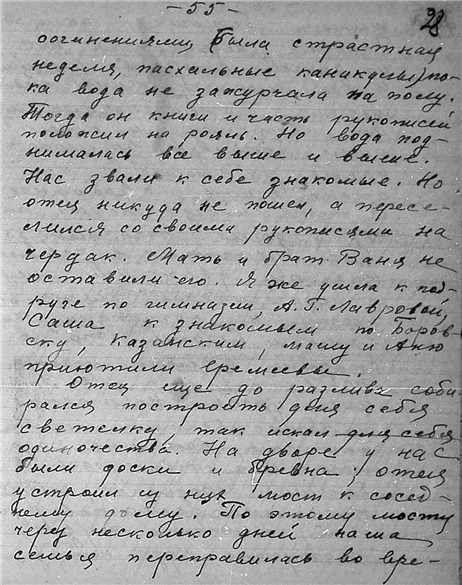 - 55 -
28
сочинениями, была страстная
неделя, пасхальные каникулы, по-
ка вода не зажурчала на полу.
Тогда он книги и часть рукописей
положил на рояль. Но вода под-
нималась все выше и выше.
Нас звали к себе знакомые. Но
отец никуда не пошел, а пересе-
лился со своими рукописями на
чердак. Мать и брат Ваня не
оставили его. Я же ушла к под-
руге по гимназии, А.Г. Лавровой,
Саша к знакомым по Боров-
ску, Казанским, Машу и Аню
приютили Еремеевы.
Отец еще до разлива соби-
рался построить для себя
светелку, так искал для себя
одиночества. На дворе у нас
были доски и бревна; отец
устроил из них мост к сосед-
нему дому. По этому мосту
через несколько дней наша
семья переправилась во вре-